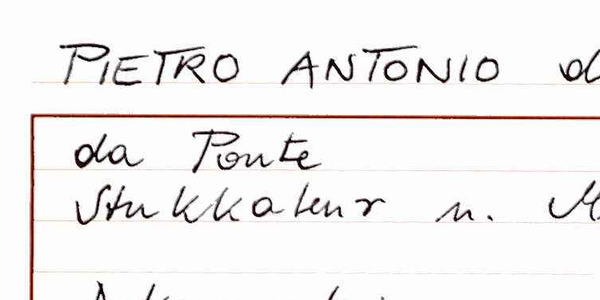 PIETRO ANTONIO
da Ponte
Stukkateur u.